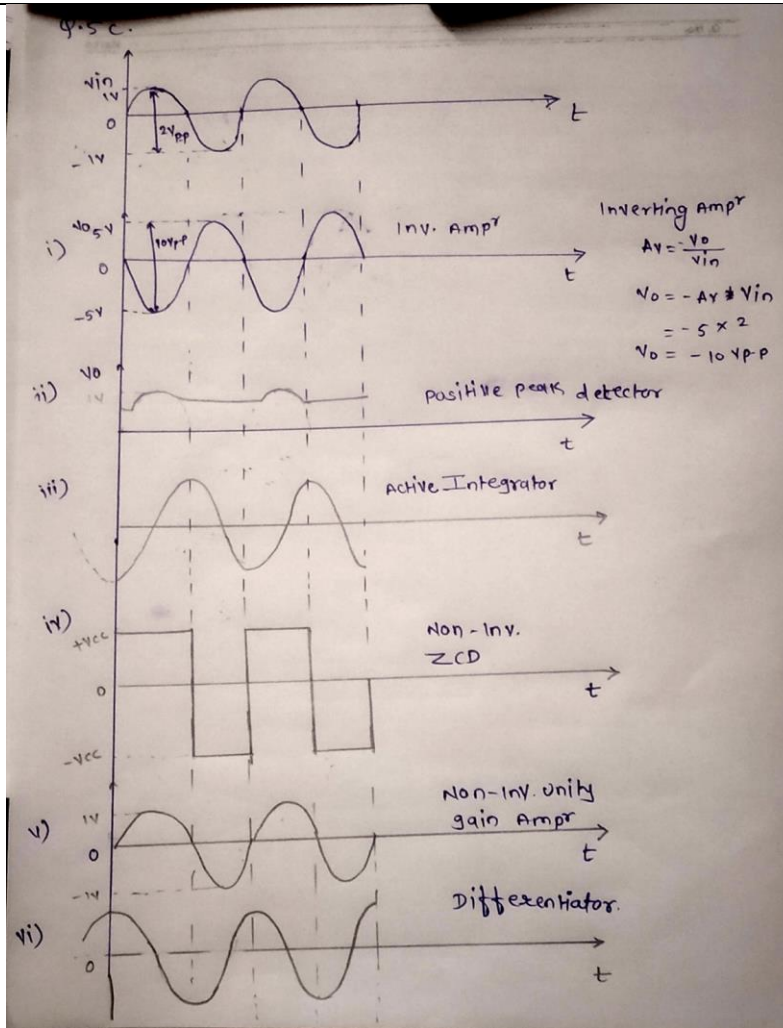 Q.5 C.
Vin
1V
0
-1V
2Vp-p
t
i)
Vo
5V
0
-5V
10Vp-p
Inv. Ampr
t
Inverting Ampr
Av = -Vo/Vin
Vo = -Av * Vin
= -5 x 2
Vo = -10 Vp-p
ii)
Vo
1V
Positive peak detector
t
iii)
Active Integrator
t
iv)
+Vcc
0
-Vcc
Non-Inv.
ZCD
t
v)
1V
0
-1V
Non-Inv. unity
gain Ampr
t
vi)
0
Differentiator.
t